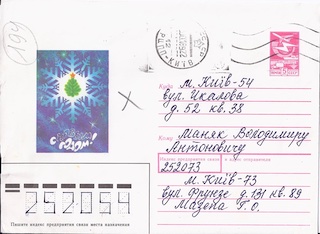 1199
С Новым
годом!
Куда м. Київ-54
вул. Чкалова
д. 52 кв. 38
Кому Маняк Володимиру
Антоновичу
Индекс предприятия связи и адрес отправителя
252073
м. Київ-73
вул. Фрунзе д. 131 кв. 89
Мазепа Г. О.
252054
Пишите индекс предприятия связи места назначения